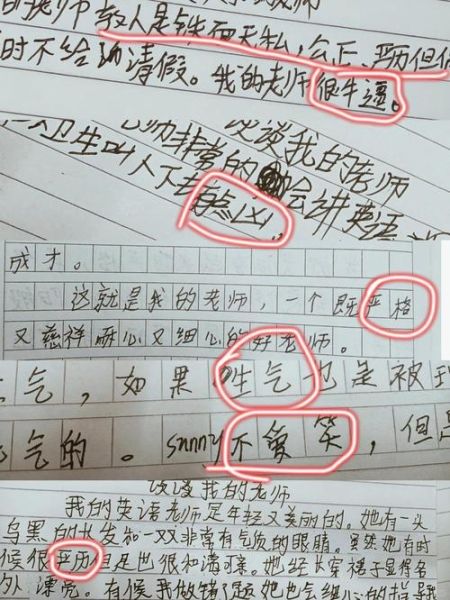 铁面无私，公正、严历但
时不给 请假。我的老师很牛逼。
谈谈我的老师
老师非常的 会讲英语
卫生叫人
有点凶
成才。
这就是我的老师，一个既严格
又慈祥耐心又细心的好老师。
气，如果 生气也是被
气的。sunny不爱笑，但是
谈谈我的老师
我的英语老师是年轻又美丽的。她有一头
乌黑的长发和一双非常有气质的眼睛。虽然她有时
候很严历但是也很和蔼可亲。她经常穿裙子显得格
外漂亮。有候我做错了题她也会细心的指导我